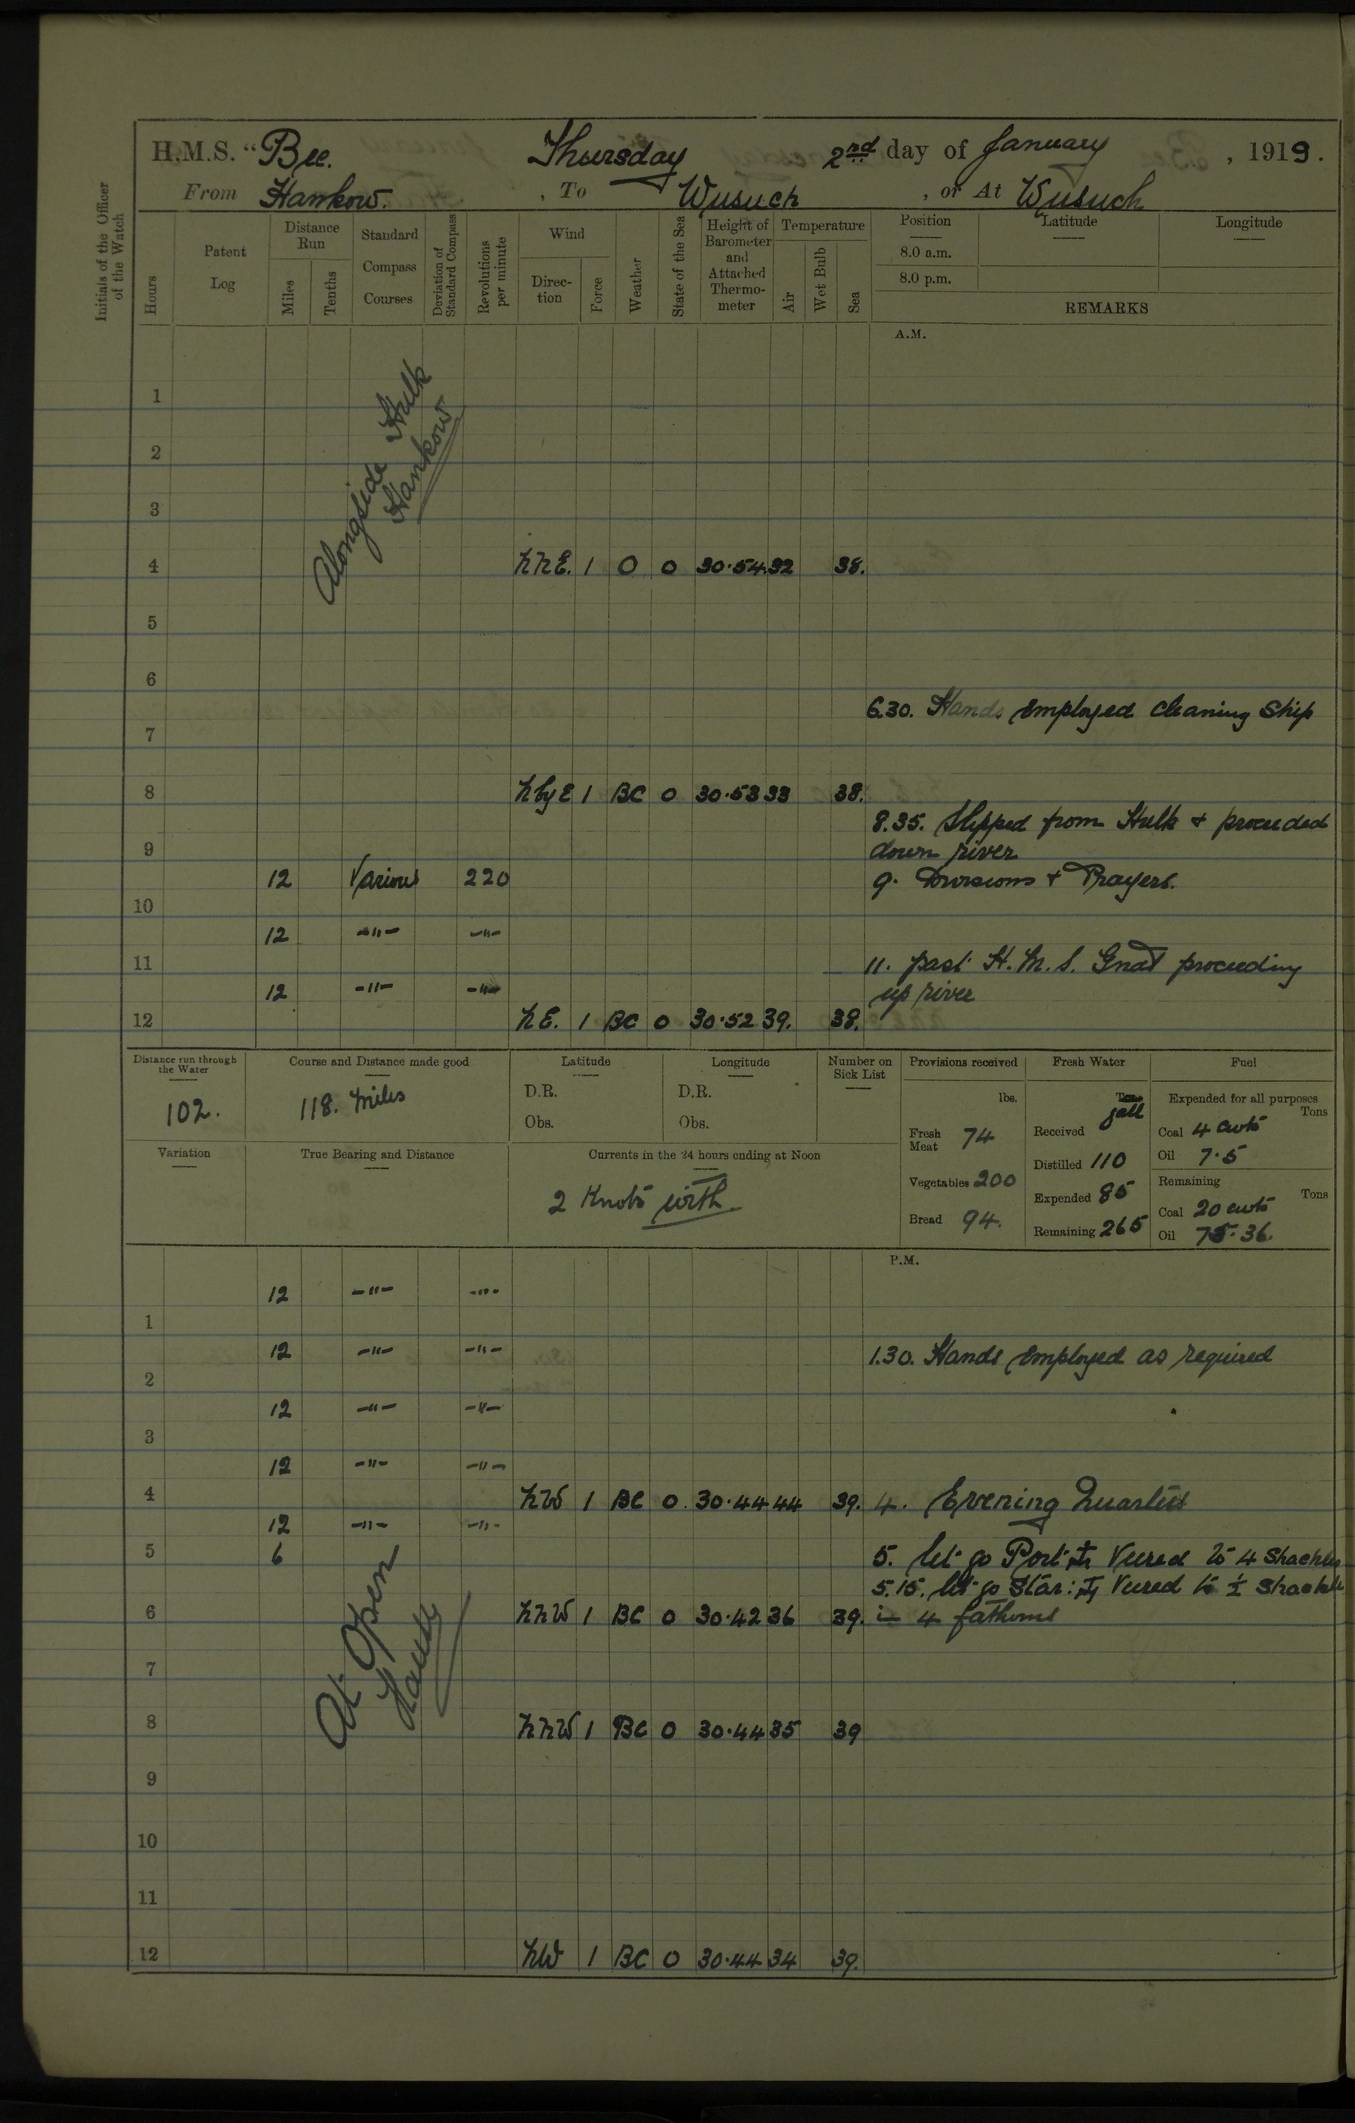 H.M.S. "Bee. Thursday 2nd day of January, 1919.
From Hankow. , To Wusueh , or At Wusueh
Initials of the Officer of the Watch
Hours
Patent Log
Distance Run
Miles
Tenths
Standard Compass Courses
Deviation of Standard Compass
Revolutions per minute
Wind
Direction
Force
Weather
State of the Sea
Height of Barometer and Attached Thermometer
Temperature
Air
Wet Bulb
Sea
Position
Latitude
Longitude
8.0 a.m.
8.0 p.m.
REMARKS
A.M.
Alongside Hulk
Hankow
1
2
3
4 NNE. 1 O 0 30.54 32 38.
5
6
6.30. Hands employed cleaning Ship
7
8 N by E 1 BC 0 30.53 33 38.
8.35. Slipped from Hulk & proceeded
down river
9
12 Various 220 9. Divisions & Prayers.
10
12 -"- -"-
11 11. past H.M.S. Gnat proceeding
12 -"- -"- up river
12 NE. 1 BC 0 30.52 39. 38.
Distance run through the Water
102.
Course and Distance made good
118. miles
Latitude
D.R.
Obs.
Longitude
D.R.
Obs.
Number on Sick List
Provisions received
lbs.
Fresh Meat 74
Vegetables 200
Bread 94.
Fresh Water
Tons
gall
Received
Distilled 110
Expended 85
Remaining 265
Fuel
Expended for all purposes
Tons
Coal 4 cwts
Oil 7.5
Remaining
Tons
Coal 20 cwts
Oil 75.36.
Variation
True Bearing and Distance
Currents in the 24 hours ending at Noon
2 Knots with
P.M.
12 -"- -"-
1
12 -"- -"- 1.30. Hands employed as required
2
12 -"- -"-
3
12 -"- -"-
4 NW 1 BC 0 30.44 44 39. 4. Evening Quarters
12 -"- -"-
5 6 5. let go Port ⚓ Veered to 4 Shackles
5.15. let go Star: ⚓ Veered to ½ Shackle
6 NNW 1 BC 0 30.42 36 39. in 4 fathoms
At Open
Hawse
7
8 NNW 1 BC 0 30.44 35 39
9
10
11
12 NW 1 BC 0 30.44 34 39.